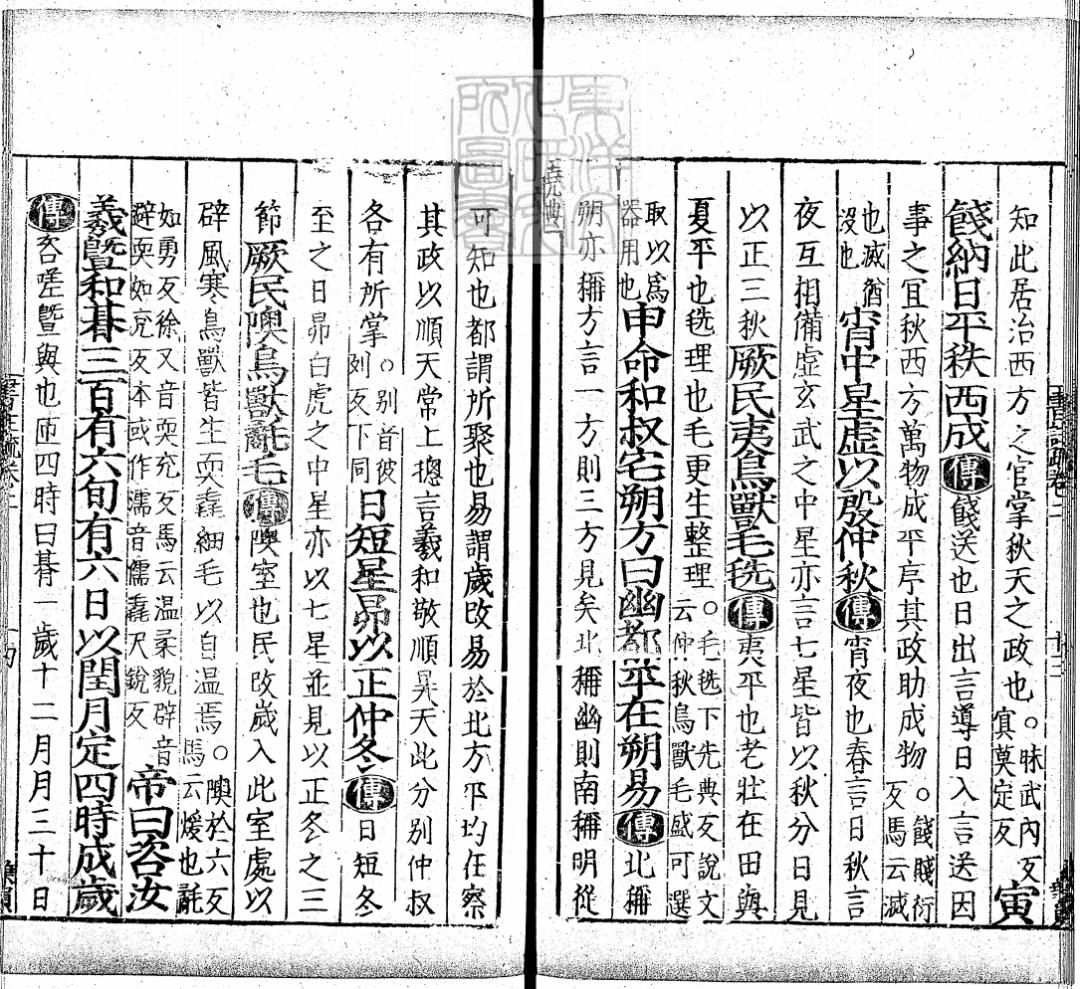 知此居治西方之官掌秋天之政也。昧武内反冥莫定反寅
餞納日平秩西成傳餞送也日出言導日入言送因
事之宜秋西方萬物成平序其政助成物。餞賤衍反馬云滅
也滅猶沒也宵中星虛以殷仲秋傳宵夜也春言日秋言
夜互相備虛玄武之中星亦言七星皆以秋分日見
以正三秋厥民夷鳥獸毛毨傳夷平也老壯在田與
夏平也毨理也毛更生整理。毛毨下先典反說文云仲秋鳥獸毛盛可選
取以爲器用也申命和叔宅朔方曰幽都平在朔易傳北稱
朔亦稱方言一方則三方見矣北稱幽則南稱明從
可知也都謂所聚也易謂歲改易於北方平均在察
其政以順天常上揔言羲和敬順昊天此分別仲叔
各有所掌。別音彼列反下同日短星昴以正仲冬傳日短冬
至之日昴白虎之中星亦以七星並見以正冬之三
節厥民隩鳥獸氄毛傳隩室也民改歲入此室處以
辟風寒鳥獸皆生耎毳細毛以自温焉。隩於六反馬云煖也氄
如勇反徐又音耎充反馬云温柔貌辟音避耎如兖反本或作濡音儒毳尺銳反帝曰咨汝
羲曁和朞三百有六旬有六日以閏月定四時成歲
傳咨嗟曁與也匝四時曰朞一歲十二月月三十日